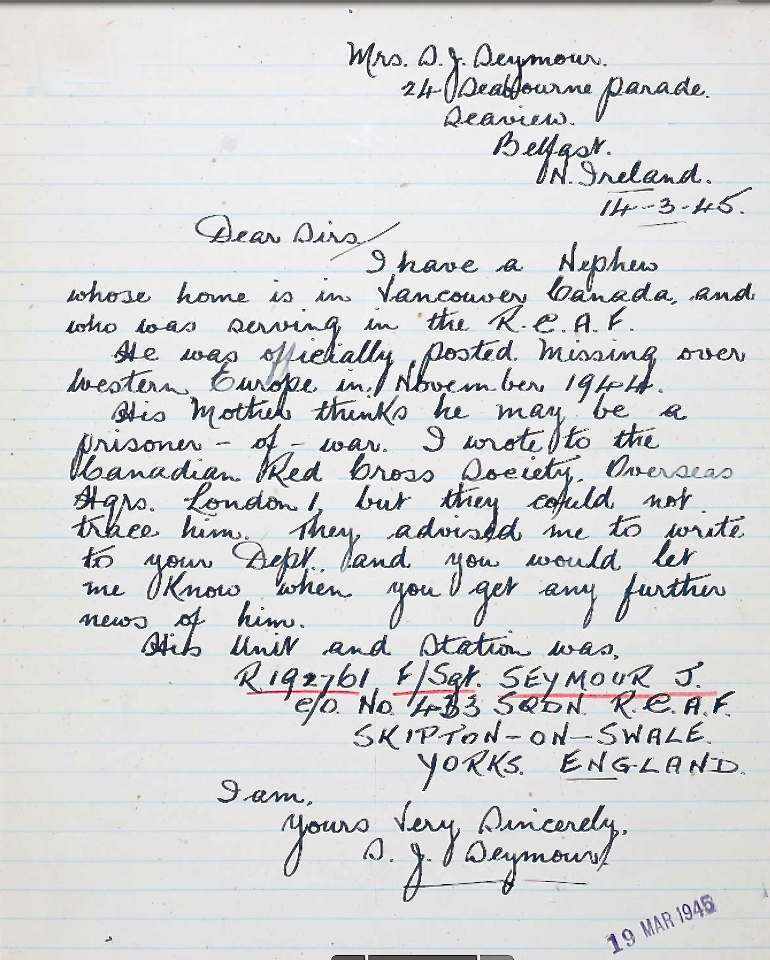 Mrs. S. J. Seymour.
24 Seabourne Parade.
Seaview.
Belfast.
N. Ireland.
14-3-45.
Dear Sirs/
I have a Nephew
whose home is in Vancouver Canada, and
who was serving in the R.C.A.F.
He was officially posted Missing over
Western Europe in November 1944.
His Mother thinks he may be a
prisoner-of-war. I wrote to the
Canadian Red Cross Society, Overseas
Hqrs. London 1, but they could not
trace him. They advised me to write
to your Dept. and you would let
me know when you get any further
news of him.
His Unit and Station was,
R192761 F/Sgt. SEYMOUR J.
c/o. No. 433 SQDN. R.C.A.F.
SKIPTON-ON-SWALE.
YORKS. ENGLAND.
I am,
Yours Very Sincerely,
S. J. Seymour
19 MAR 1945